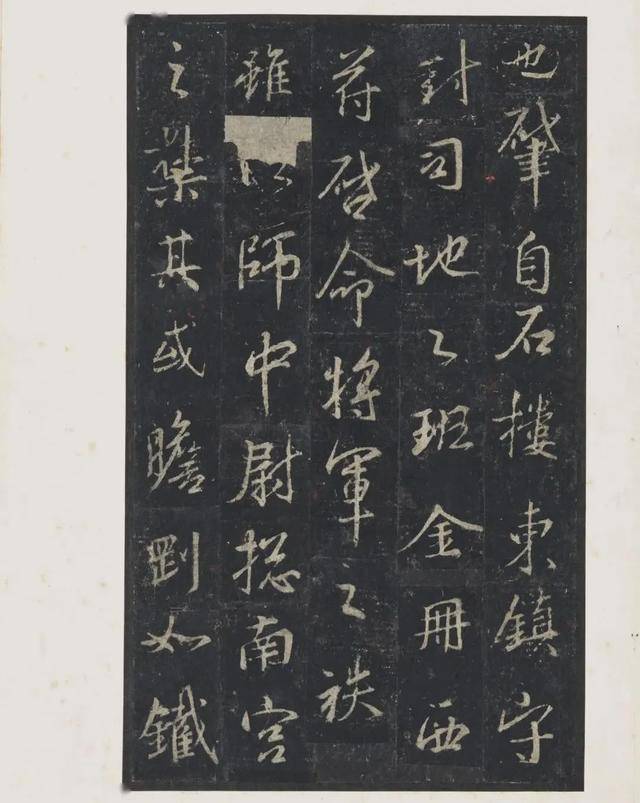 也肇自石樓東鎮守
封司地之班金冊西
符啓命將軍之袟
雖以師中尉揔南宮
之藥其或瞻剛如鐵